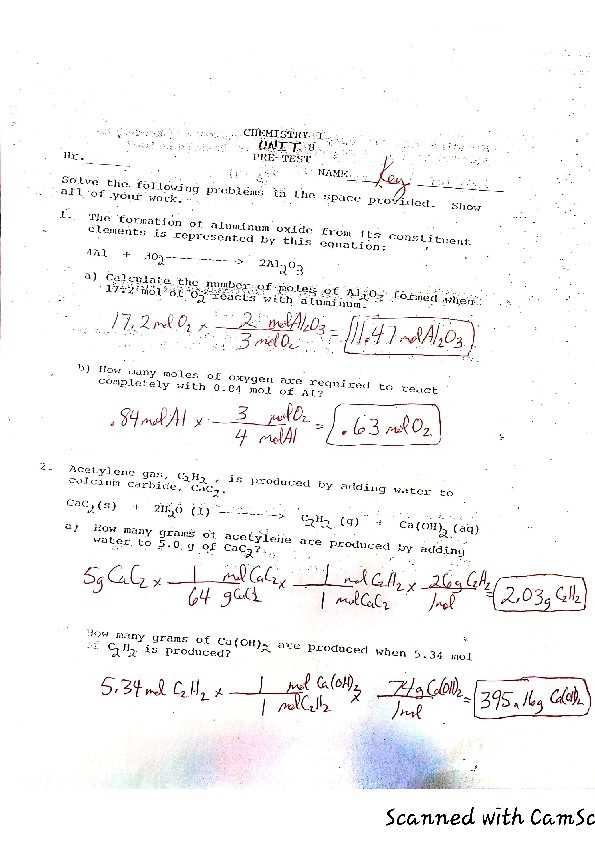 CHEMISTRY I
UNIT 8
PRE-TEST
Hr. _____ NAME Key
Solve the following problems in the space provided. Show
all of your work.
1. The formation of aluminum oxide from its constituent
elements is represented by this equation:
4Al + 3O2 ---------> 2Al2O3
a) Calculate the number of moles of Al2O3 formed when
17.2 mol of O2 reacts with aluminum.
17.2 mol O2 x 2 mol Al2O3 / 3 mol O2 = 11.47 mol Al2O3
b) How many moles of oxygen are required to react
completely with 0.84 mol of Al?
.84 mol Al x 3 mol O2 / 4 mol Al = .63 mol O2
2. Acetylene gas, C2H2, is produced by adding water to
calcium carbide, CaC2.
CaC2(s) + 2H2O (l) --------> C2H2 (g) + Ca(OH)2 (aq)
a) How many grams of acetylene are produced by adding
water to 5.0 g of CaC2?
5g CaC2 x 1 mol CaC2 / 64 g CaC2 x 1 mol C2H2 / 1 mol CaC2 x 26g C2H2 / 1 mol = 2.03g C2H2
How many grams of Ca(OH)2 are produced when 5.34 mol
of C2H2 is produced?
5.34 mol C2H2 x 1 mol Ca(OH)2 / 1 mol C2H2 x 74g Ca(OH)2 / 1 mol = 395.16g Ca(OH)2
Scanned with CamSc